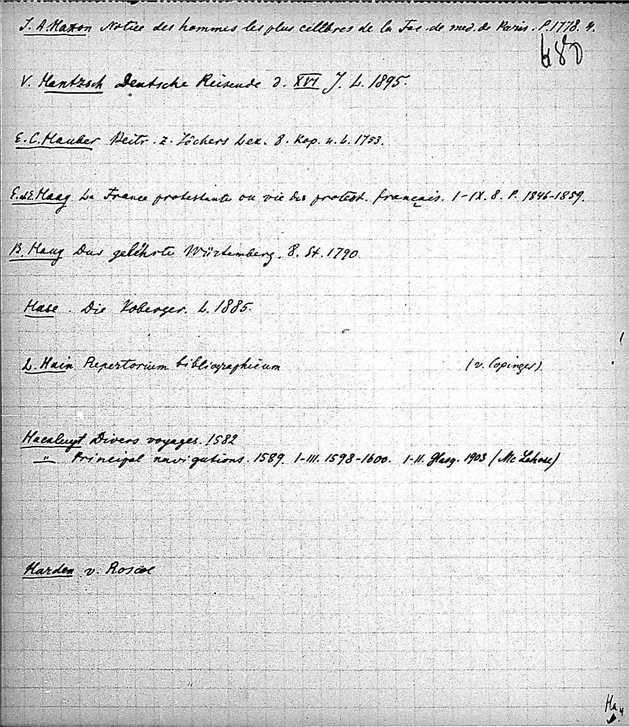 J. A. Hazon Notice des hommes les plus célèbres de la Fac. de med. de Paris. P. 1778. 4.
480
V. Hantzsch Deutsche Reisende d. XVI J. L. 1895.
E. C. Hauber Beitr. z. Jöchers Lex. 8. Kop. u. L. 1753.
E. d. E. Haag La France protestante ou vie des protest. français. I-IX. 8. P. 1846-1859.
B. Haug Das gelehrte Würtemberg. 8. St. 1790
Hase. Die Koberger. L. 1885.
L. Hain Repertorium bibliographicum (v. Copinger)
Hacaluyt Divers voyages. 1582
" Principal navigations. 1589. I-III. 1598-1600. I-II. Glasg. 1903 (Mc Lehose)
Harden v. Roscoe
Ha 4